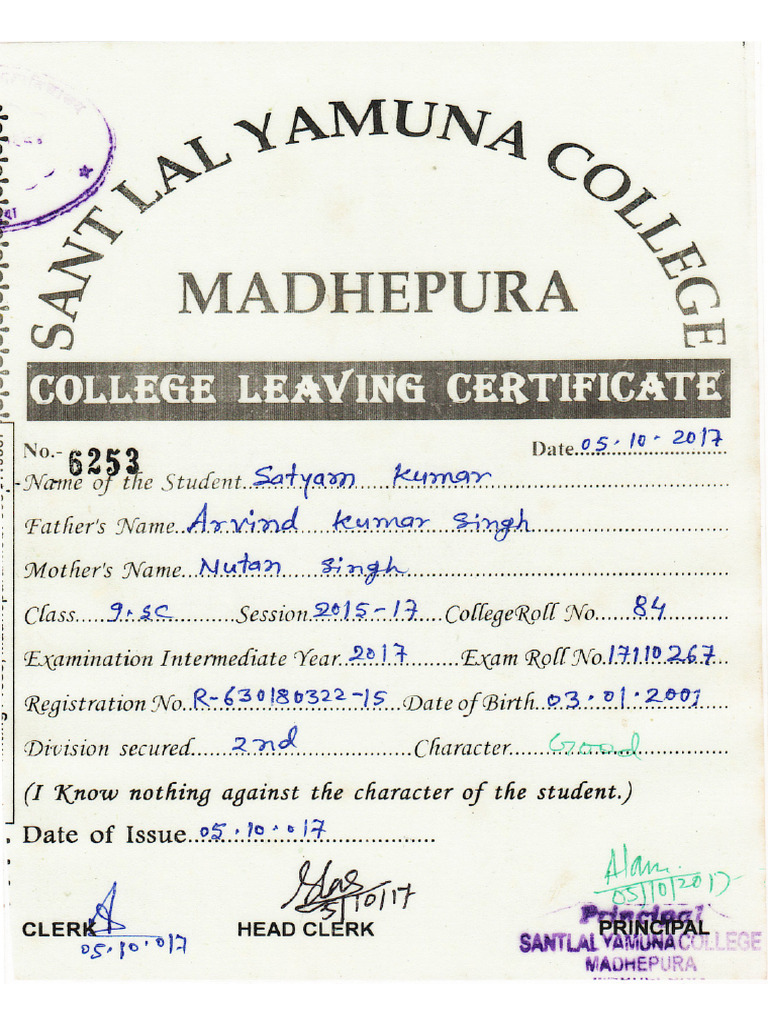 SANT LAL YAMUNA COLLEGE
MADHEPURA
COLLEGE LEAVING CERTIFICATE
No.- 6253 Date 05.10.2017
Name of the Student Satyam Kumar
Father's Name Arvind Kumar Singh
Mother's Name Nutan Singh
Class 9.SC Session 2015-17 College Roll No. 84
Examination Intermediate Year 2017 Exam Roll No. 17110267
Registration No. R-630180322-15 Date of Birth 03.01.2001
Division secured 2nd Character Good
(I Know nothing against the character of the student.)
Date of Issue 05.10.017
5/10/17
05/10/2017
CLERK HEAD CLERK PRINCIPAL
05.10.017
Principal
SANTLAL YAMUNA COLLEGE
MADHEPURA